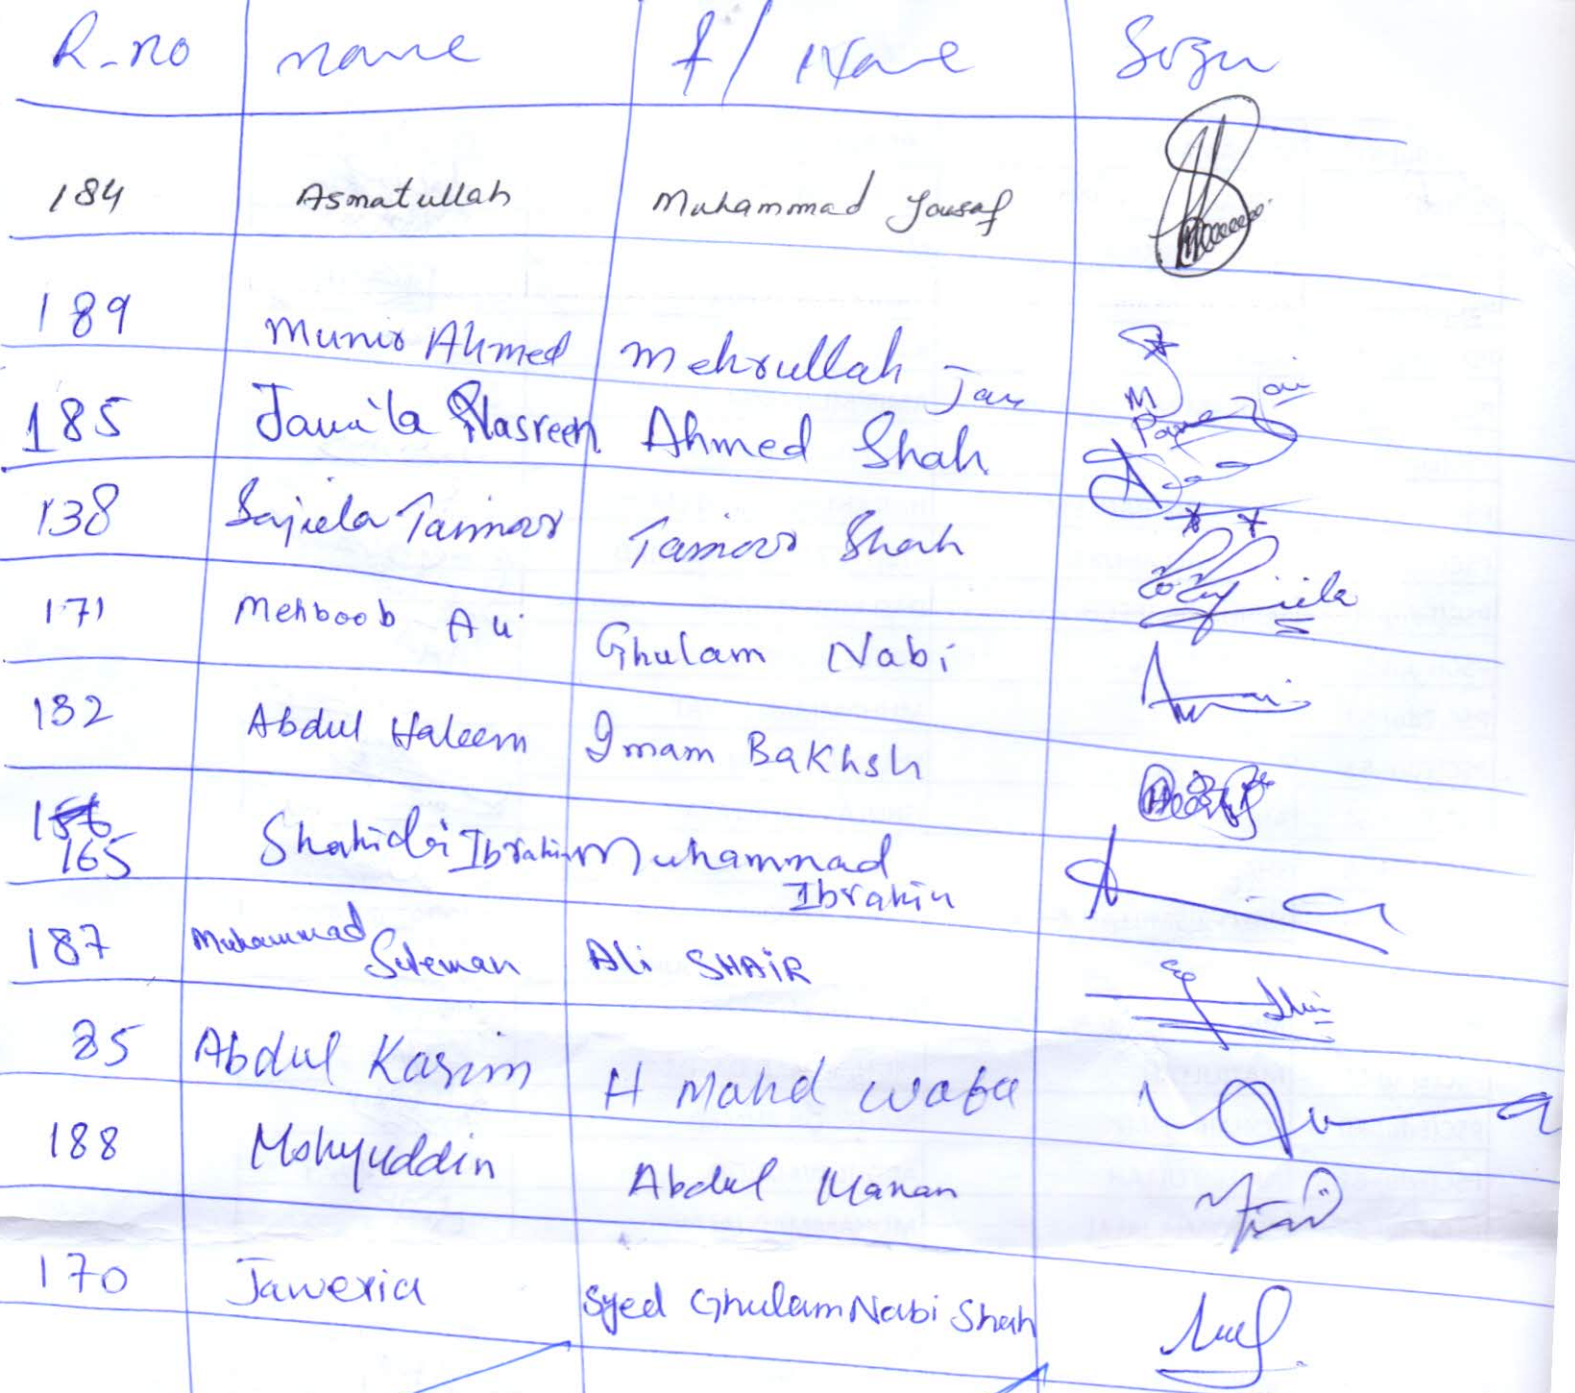 R-no name f/ Name Sign
184 Asmatullah Muhammad Yousaf
189 Munir Ahmed Mehrullah Jan
185 Jamila Nasreen Ahmed Shah
138 Sajiela Taimoor Taimoor Shah
171 Mehboob Ali Ghulam Nabi
132 Abdul Haleem Imam BaKhsh
165 Shahida Ibrahim Muhammad
Ibrahim
187 Muhammad Suleman Ali SHAiR
35 Abdul Kasim H Mohd wafa
188 Mohyuddin Abdul Manan
170 Jaweria Syed Ghulam Nabi Shah